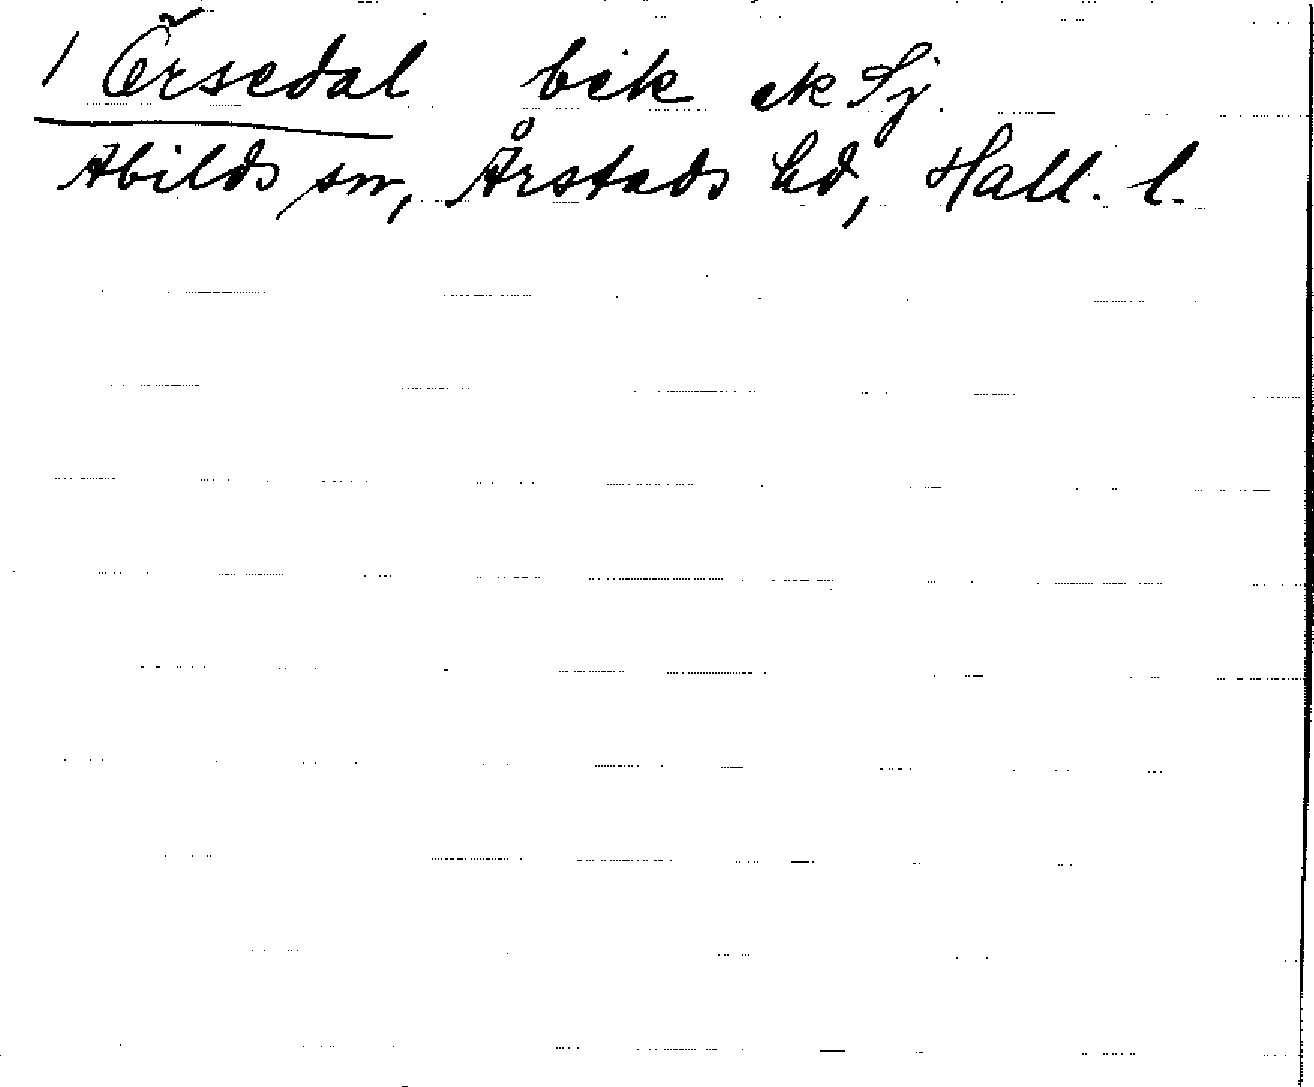 1 Örsedal bik ek Sj.
Abilds sn, Årstads hd, Hall. l.